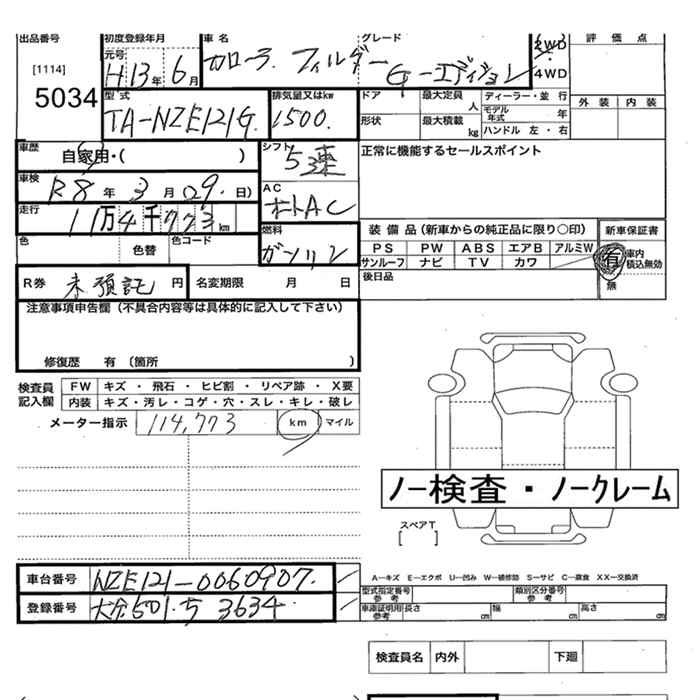 出品番号 初度登録年月 車名 グレード 2WD 評価点
元号
[1114] H13年 6月 カローラ フィルダー G-エディション ・ 4WD
5034 型式 排気量又はkw ドア 最大定員 人 ディーラー・並行 外装 内装
TA-NZE121G. 1500. 形状 最大積載 kg モデル年式 年
ハンドル 左・右
車歴 自家用・( ) シフト 5速 正常に機能するセールスポイント
車検 R8年 3月 09.日) AC オートAC
走行 11万4千773 km 燃料 装備品(新車からの純正品に限り○印) 新車保証書
色 色替 色コード ガソリン PS PW ABS エアB アルミW 有 車内積込無効
サンルーフ ナビ TV カワ 無
R券 未預託 円 名変期限 月 日 後日品
注意事項申告欄(不具合内容等は具体的に記入して下さい)
修復歴 有 〔箇所 〕
検査員記入欄 FW キズ・飛石・ヒビ割・リペア跡・X要
内装 キズ・汚レ・コゲ・穴・スレ・キレ・破レ
メーター指示 114,773 km マイル
ノー検査・ノークレーム
スペアT
[ ]
車台番号 NZE121-0060907.
A―キズ E―エクボ U―凹み W―補修跡 S―サビ C―腐食 XX―交換済
型式指定番号 参考 類別区分番号 参考
登録番号 大分501.5 3634. 車庫証明用 参考 長さ cm 幅 cm 高さ cm
検査員名 内外 下廻